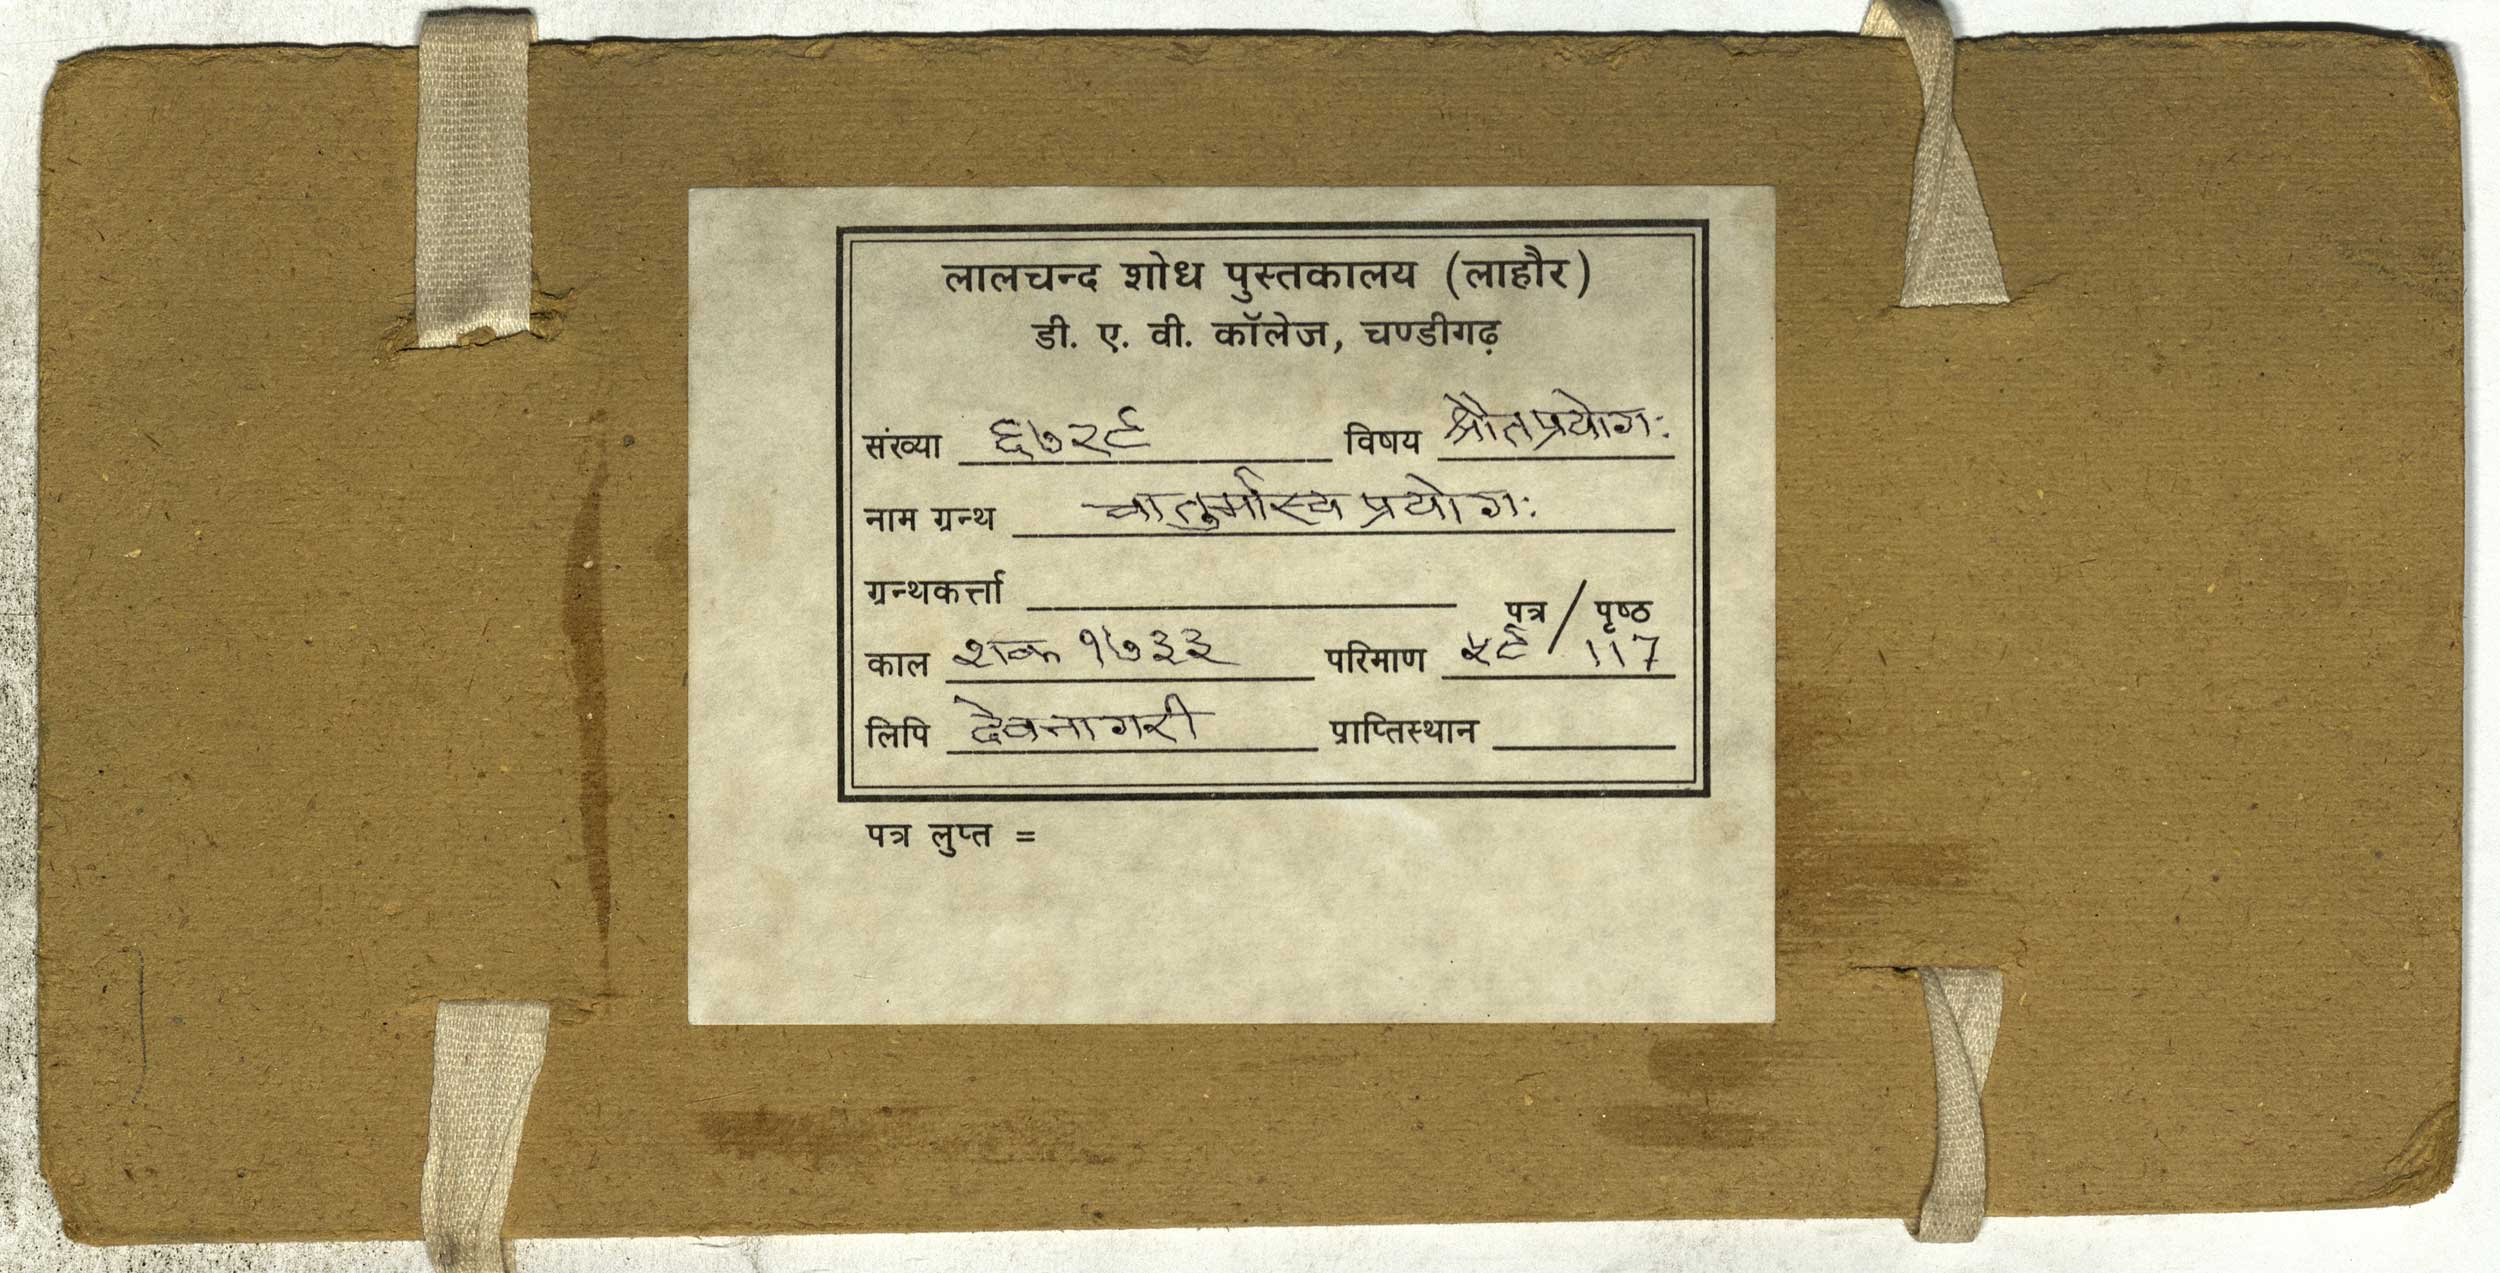 लालचन्द शोध पुस्तकालय (लाहौर)
डी. ए. वी. कॉलेज, चण्डीगढ़
संख्या ६७२९ विषय श्रौतप्रयोगः
नाम ग्रन्थ चातुर्मास्य प्रयोगः
ग्रन्थकर्त्ता
पत्र / पृष्ठ
काल शक १७३३ परिमाण ५९ / 117
लिपि देवनागरी प्राप्तिस्थान
पत्र लुप्त =